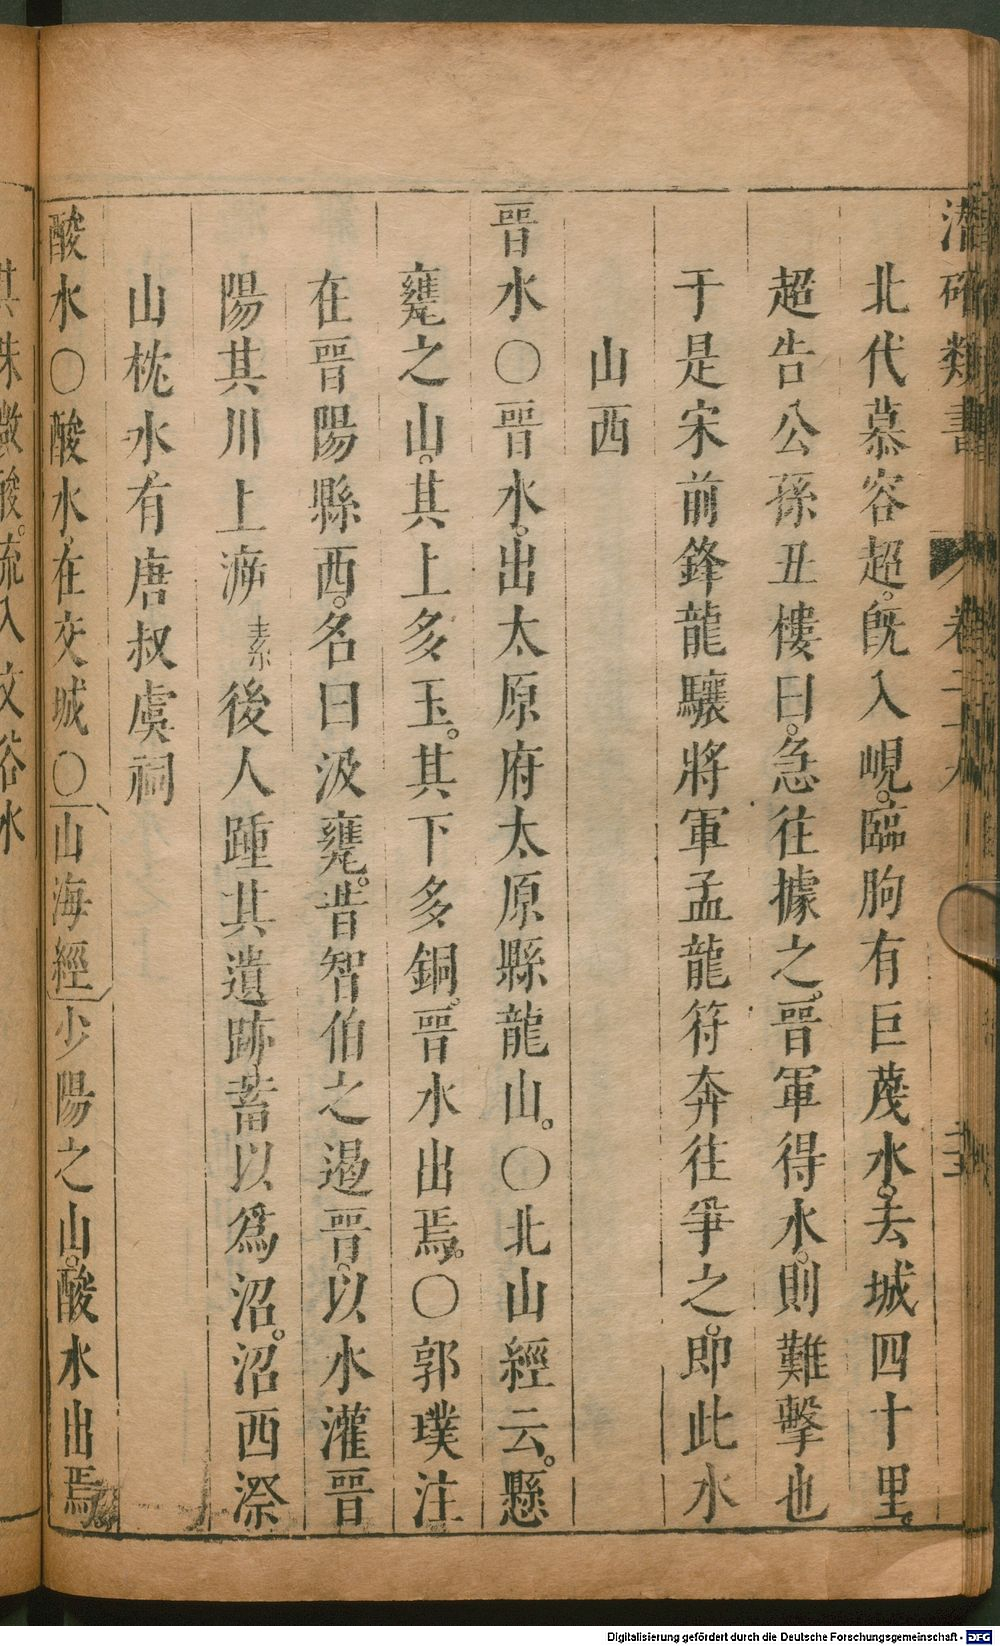 潛確類書 卷二十九
北代慕容超。既入峴。臨朐有巨蔑水。去城四十里。
超告公孫丑樓曰。急往據之。晉軍得水。則難擊也
于是宋前鋒龍驤將軍孟龍符奔往爭之。即此水
山西
晉水〇晉水。出太原府太原縣龍山。〇北山經云。懸
甕之山。其上多玉。其下多銅。晉水出焉。〇郭璞注
在晉陽縣西。名曰汲甕。昔智伯之遏晉。以水灌晉
陽其川上泝素後人踵其遺跡蓄以爲沼。沼西溪
山枕水。有唐叔虞祠
酸水〇酸水。在交城〇山海經少陽之山。酸水出焉。
其味微酸。流入文谷水
Digitalisierung gefördert durch die Deutsche Forschungsgemeinschaft - DFG